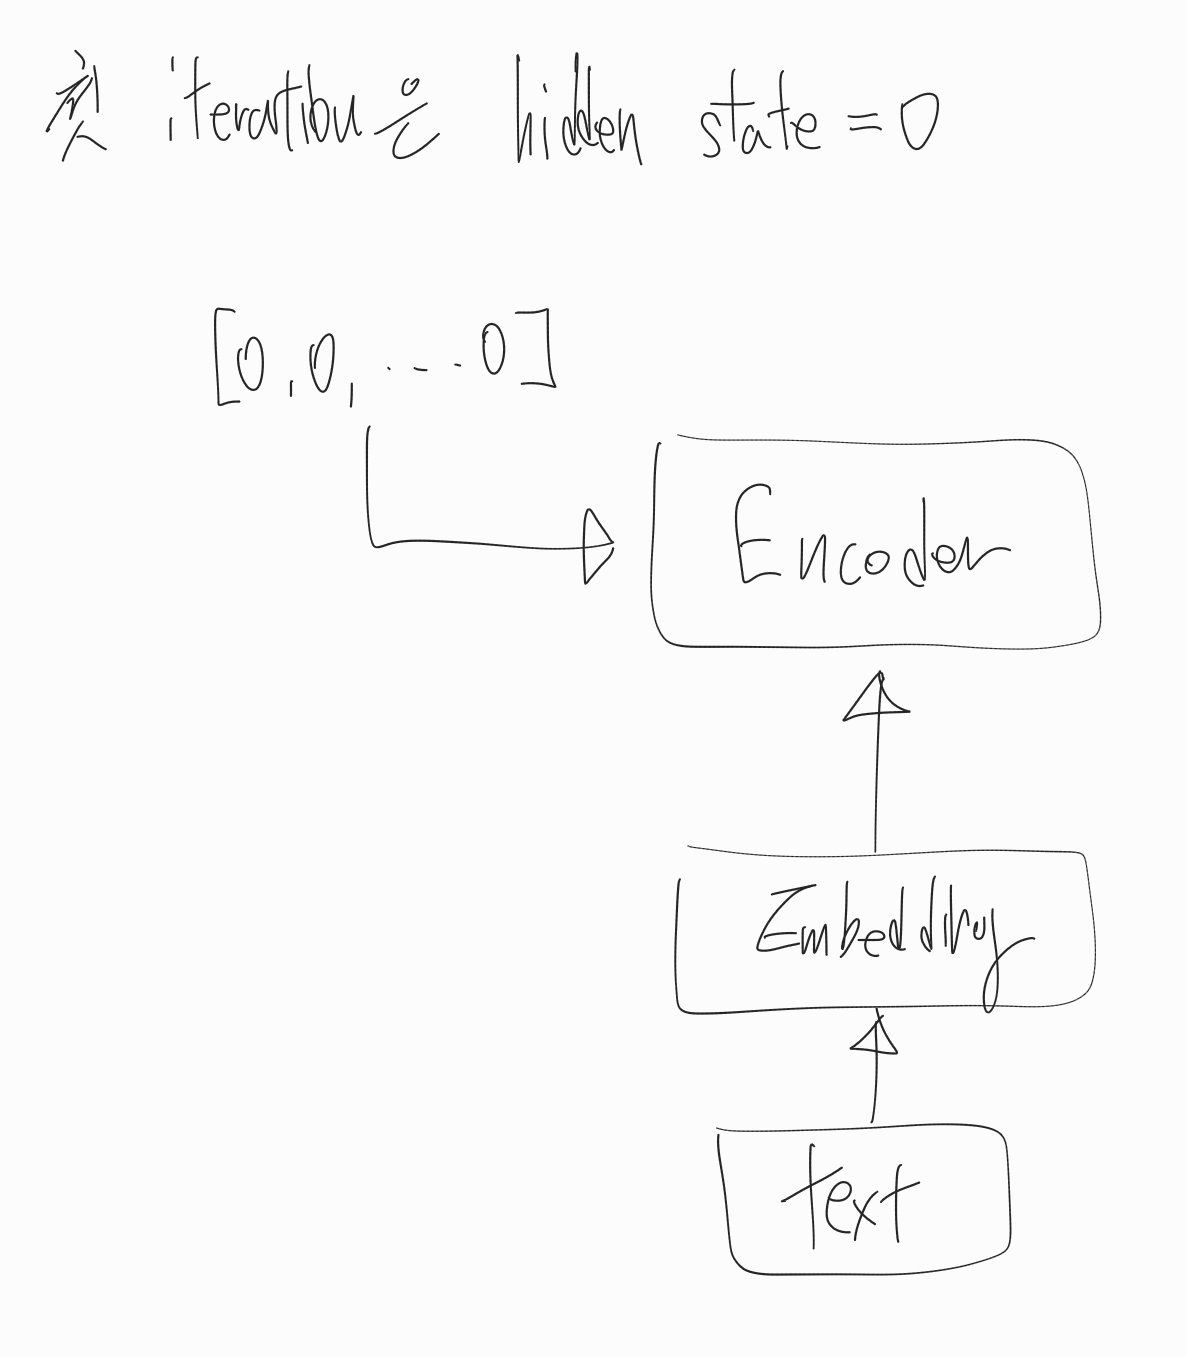 첫 iteration은 hidden state = 0
[0, 0, ... 0]
Encoder
Embedding
text